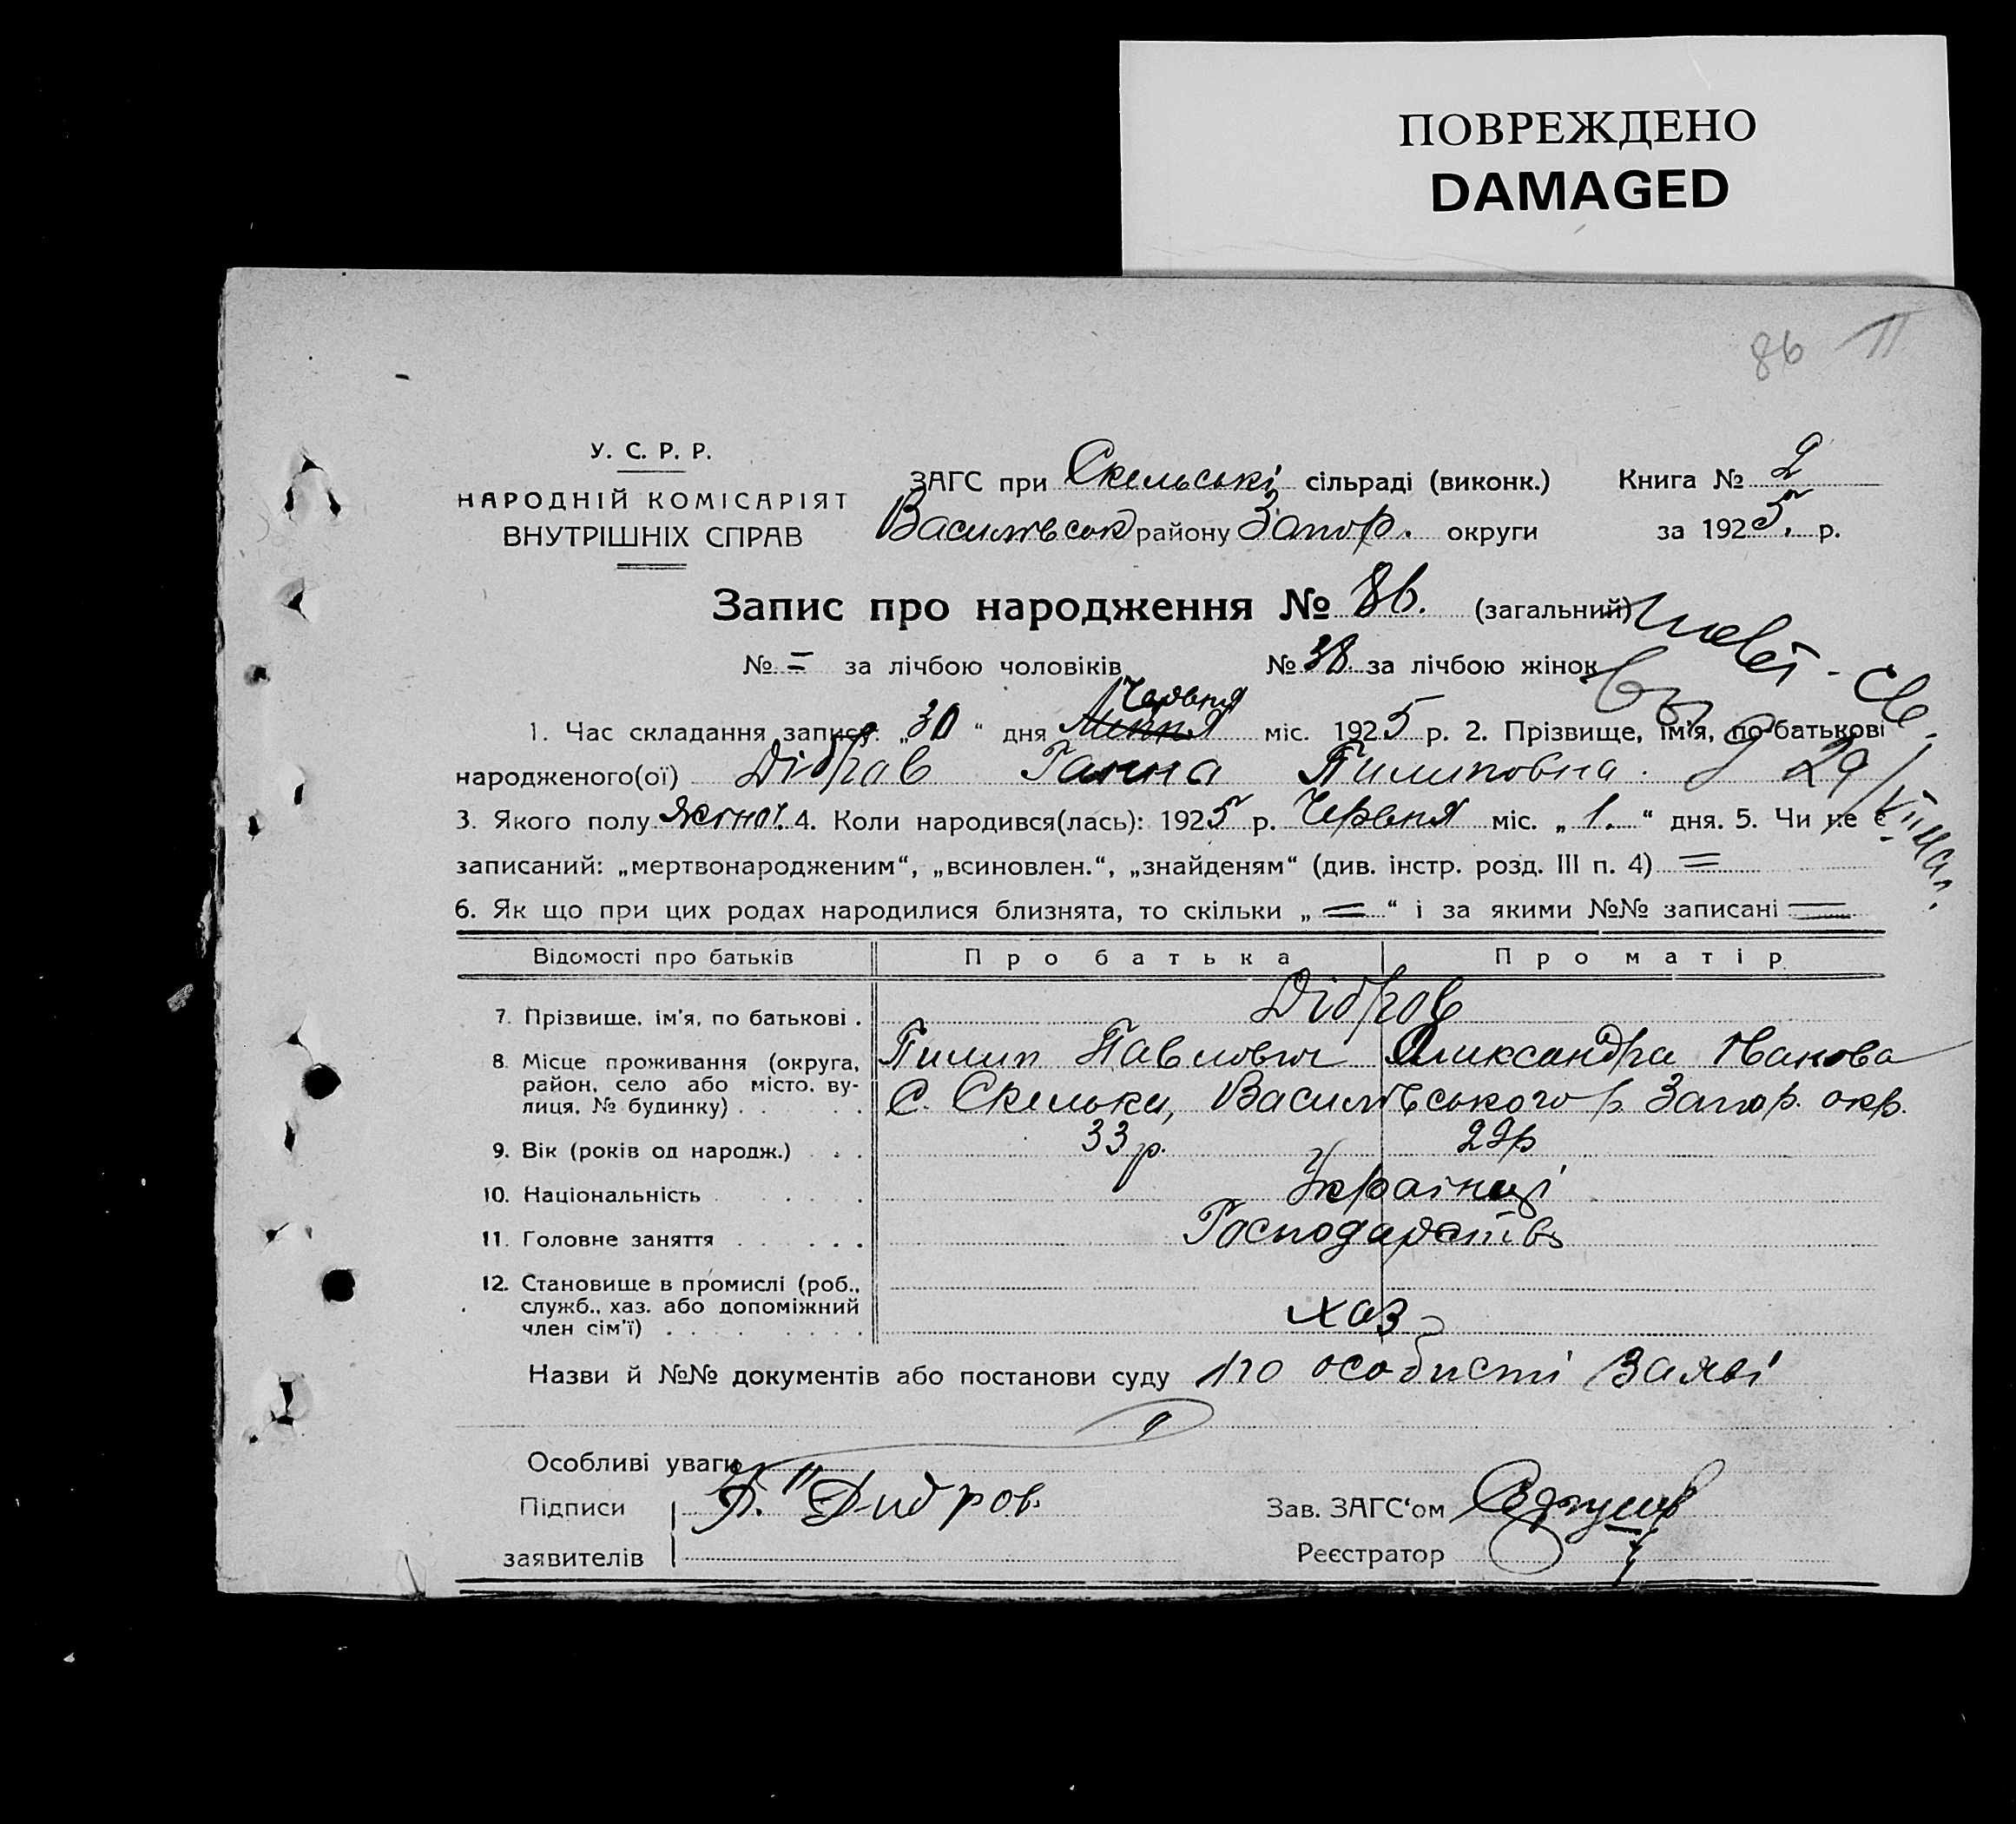 ПОВРЕЖДЕНО
DAMAGED
86 II
У. С. Р. Р.
НАРОДНІЙ КОМІСАРІЯТ
ВНУТРІШНІХ СПРАВ
ЗАГС при Скельські сільраді (виконк.)
Василівськ району Запор. округи
Книга № 2
за 1925. р.
Запис про народження № 86. (загальний)
№ = за лічбою чоловіків № 38. за лічбою жінок
Червня
1. Час складання запису: „30“ дня міс. 1925 р. 2. Прізвище, ім'я, по-батькові
народженого(ої) Дібров Ганна Пилиповна.
29/VII
3. Якого полу жіно́ї. 4. Коли народився(лась): 1925 р. Червня міс. „1.“ дня. 5. Чи не є
записаний: „мертвонародженим“, „всиновлен.“, „знайденям“ (див. інстр. розд. III п. 4) =
6. Як що при цих родах народилися близнята, то скільки „=“ і за якими №№ записані =
Відомості про батьків Про батька Про матір
7. Прізвище, ім'я, по батькові . Дібров
Пилип Павлович Олександра Іванова
8. Місце проживання (округа,
район, село або місто, ву-
лиця, № будинку) . . . . С. Скельки, Василівського р. Запор. окр.
9. Вік (років од народж.) . . . 33 р. 22р
10. Національність . . . . Українці
11. Головне заняття . . . . . . Господарство
12. Становище в промислі (роб.,
служб., хаз. або допоміжний
член сім'ї) . . . . . . . . хаз
Назви й №№ документів або постанови суду по особисті заяві
Особливі уваги
Підписи П. Дидров
заявителів
Зав. ЗАГС'ом
Реєстратор